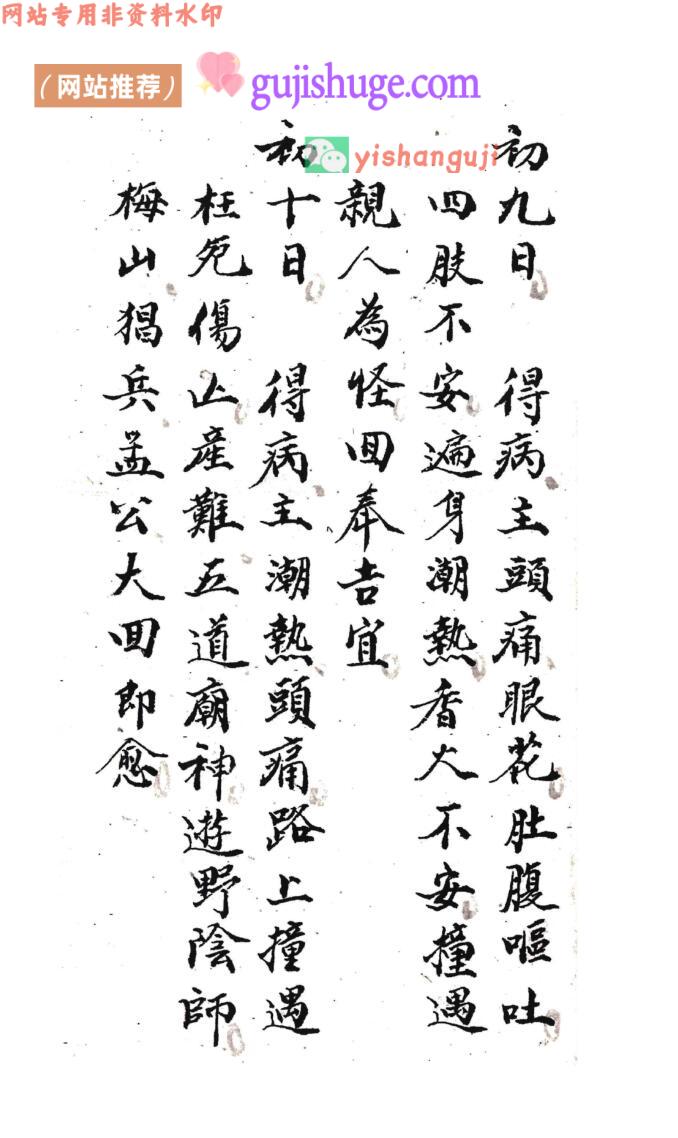 网站专用非资料水印
（网站推荐）
gujishuge.com
yishanguji
初九日 得病主頭痛眼花肚腹嘔吐
四肢不安遍身潮熱香火不安撞遇
親人為怪回奉吉宜
初十日 得病主潮熱頭痛路上撞遇
枉死傷亡產難五道廟神遊野陰師
梅山猖兵孟公大回即愈